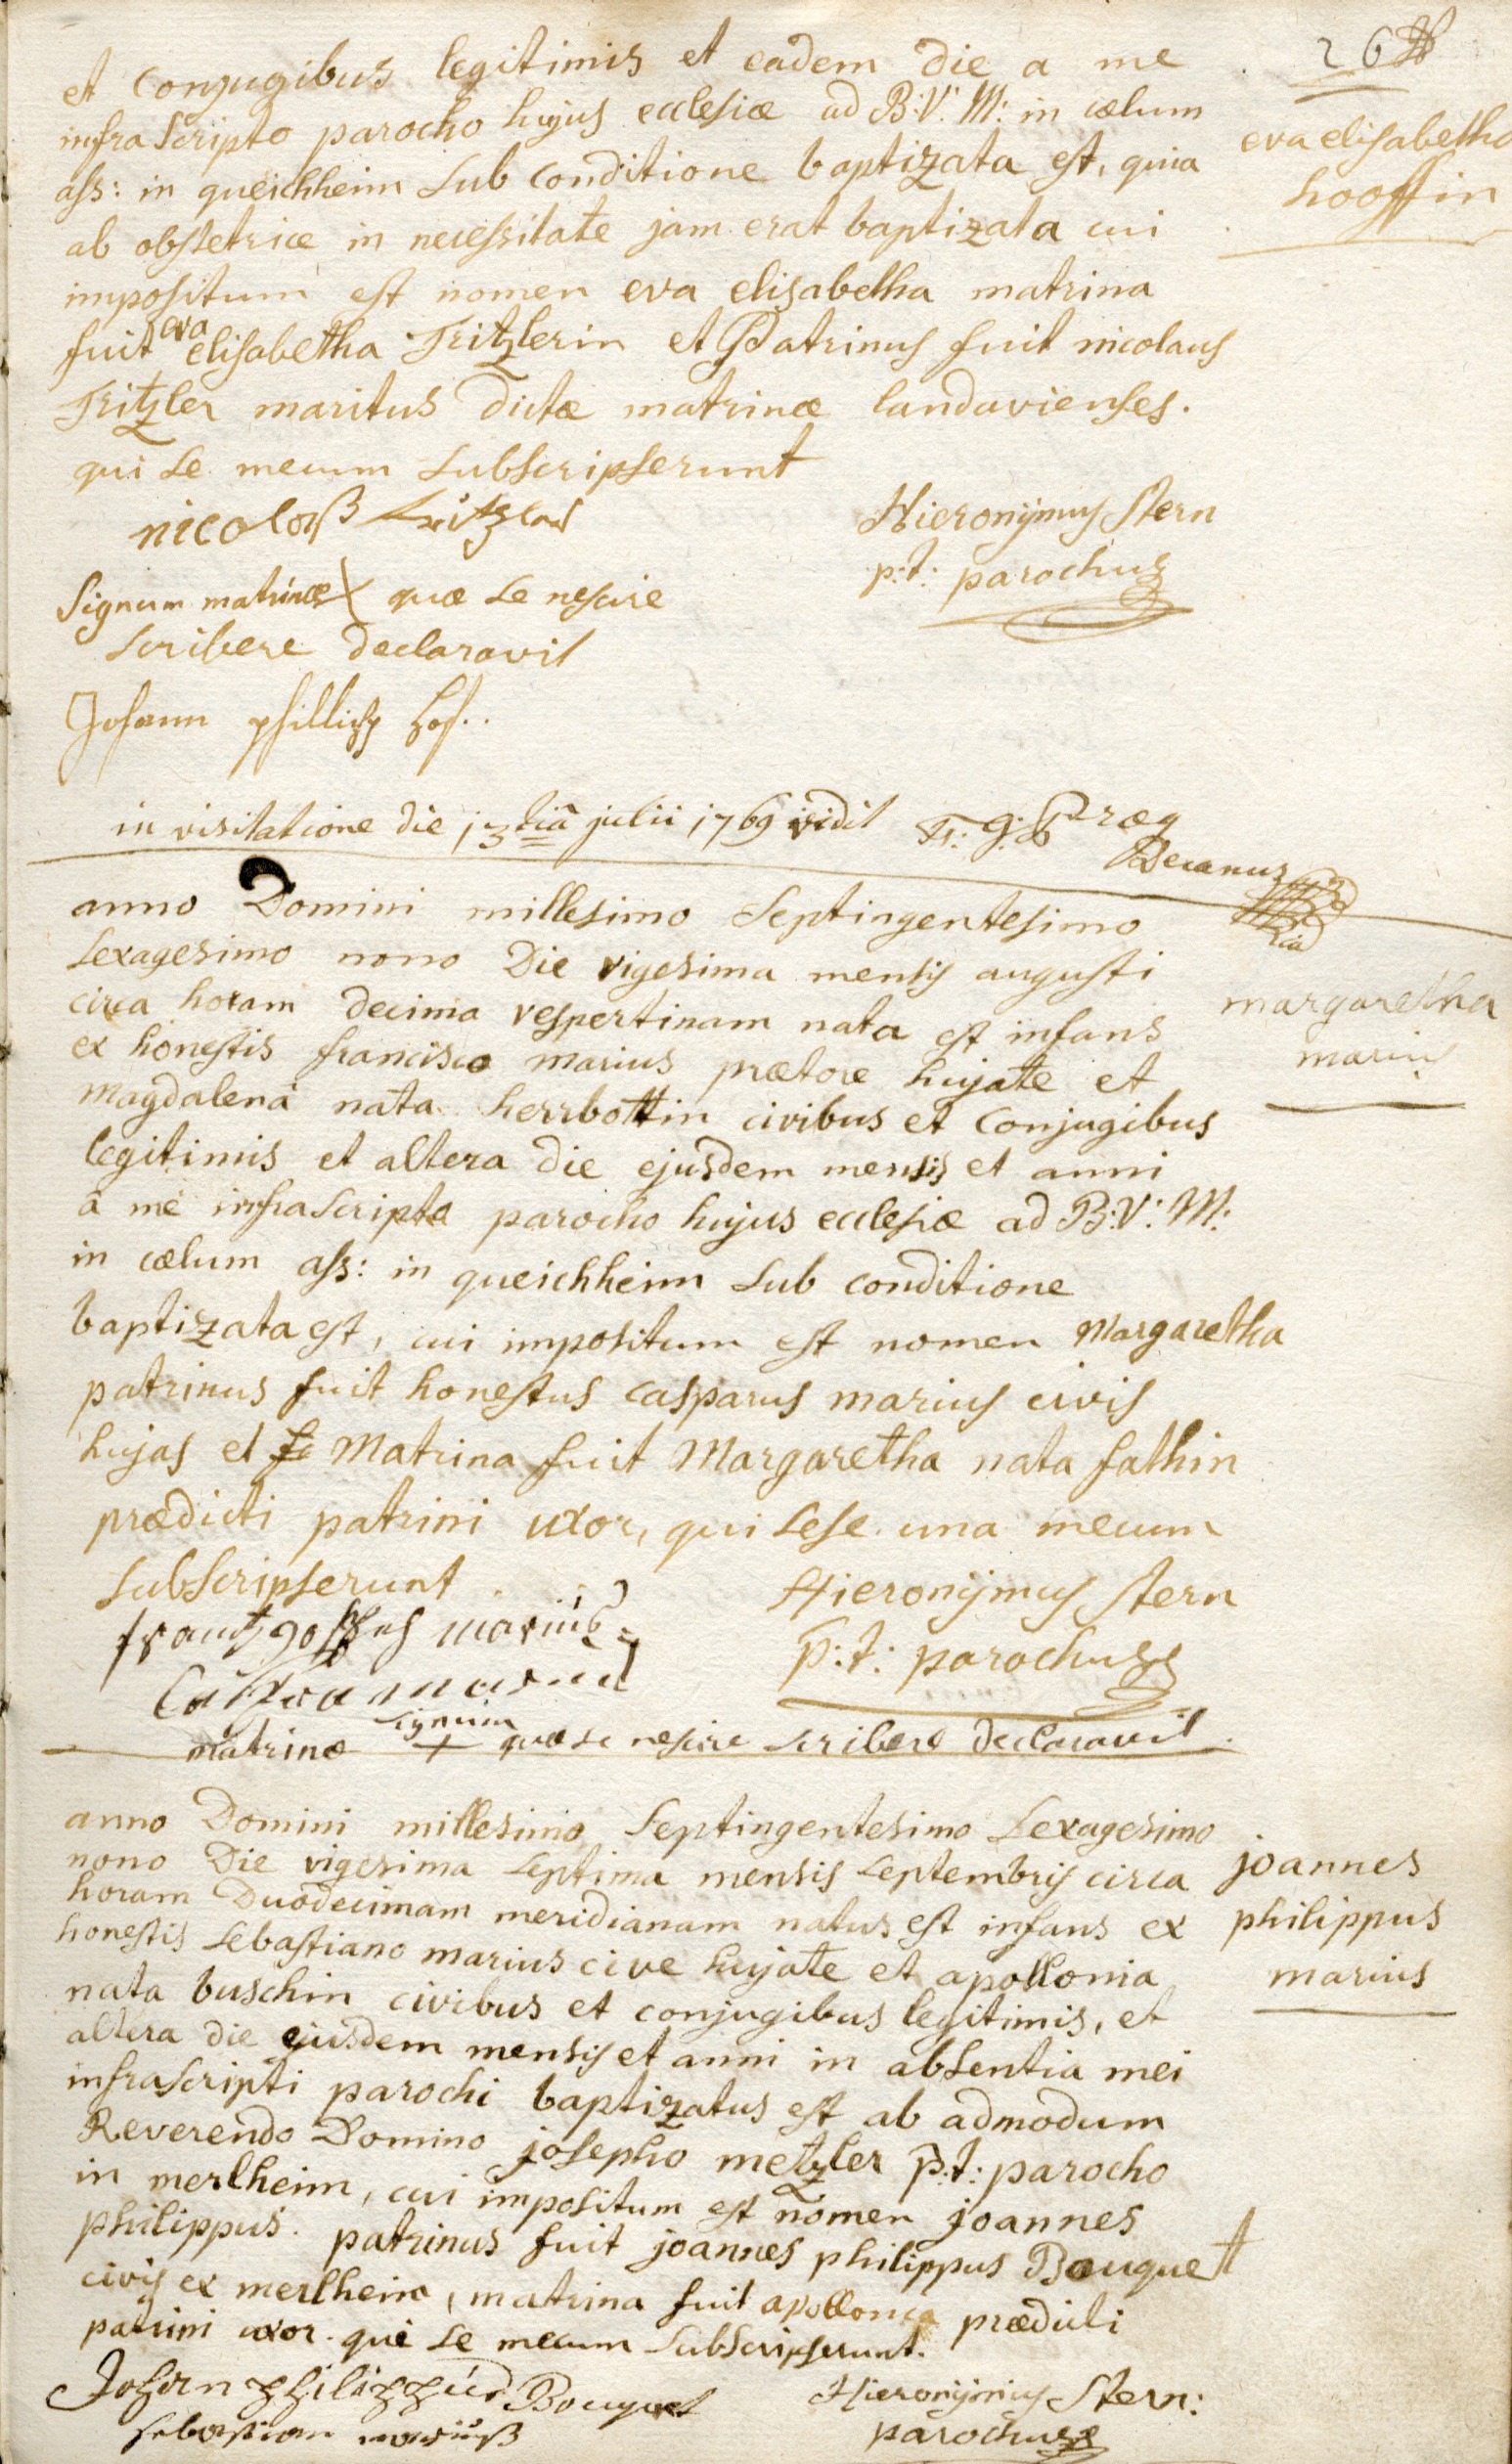 et Conjugibus legitimis et eadem die a me
infra scripto parocho hujus ecclesiæ ad B: V: M: in cælum
ass: in queichheim sub conditione baptizata est, quia
ab obstetrice in necessitate jam erat baptizata cui
impositum est nomen eva elisabetha matrina
fuit eva elisabetha Tritzlerin et Patrinus fuit nicolaus
Tritzler maritus dictæ matrinæ landavienses.
qui se mecum subscripserunt
nicolaß
Hieronijmus Stern
p: t: parochus
Signum matrinæ X quæ se nescire
scribere declaravit
Johann phillipp hof..
in visitatione die 13tiâ julii 1769 vidit
Decanus
anno Domini millesimo septingentesimo
sexagesimo nono Die vigesima mensis augusti
circa horam decima vespertinam nata est infans
ex honestis francisco marius prætore hujate et
Magdalena nata herrbottin civibus et Conjugibus
legitimis et altera die ejusdem mensis et anni
a me infrascripto parocho hujus ecclesiæ ad B: V: M:
in cælum ass: in queichheim sub conditione
baptizata est, cui impositum est nomen Margaretha
patrinus fuit honestus casparus marius civis
hujas et Matrina fuit Margaretha nata fathin
prædicti patrini uxor, qui sese una mecum
subscripserunt.
Hieronijmus Stern
p: t: parochus
marius
matrinæ signum + quæ se nescire scribere declaravit.
anno Domini millesimo septingentesimo sexagesimo
nono Die vigesima septima mensis septembris circa
horam Duodecimam meridianam natus est infans ex
honestis sebastiano marius cive hujate et apollonia
nata buschin civibus et conjugibus legitimis, et
altera die ejusdem mensis et anni in absentia mei
infrascripti parochi baptizatus est ab admodum
Reverendo Domino josepho metzler p: t: parocho
in merlheim, cui impositum est nomen joannes
philippus. patrinus fuit joannes philippus Bouquet
civis ex merlheim, matrina fuit apollonia prædicti
patrini uxor. qui se mecum subscripserunt.
Johan philippus Bouquet
sebastian mariuß
Hieronijmus Stern:
parochus
eva elisabetha
hooffin
margaretha
marius
joannes
philippus
marius